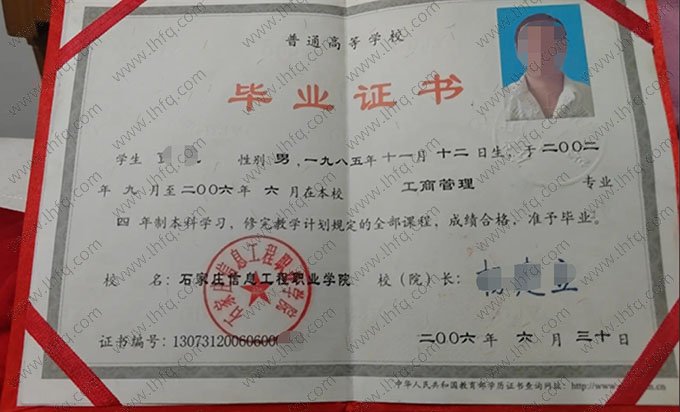 普通高等学校
毕业证书
学生 性别 男，一九八五年十一月十二日生，于二〇〇二
年九月至二〇〇六年六月在本校 工商管理 专业
四年制本科学习，修完教学计划规定的全部课程，成绩合格，准予毕业。
石家庄信息工程职业学院
校 名：石家庄信息工程职业学院 校（院）长：
证书编号：13073120060600
二〇〇六年 六月 三十日
中华人民共和国教育部学历证书查询网址：http://www.
www.lhfq.com